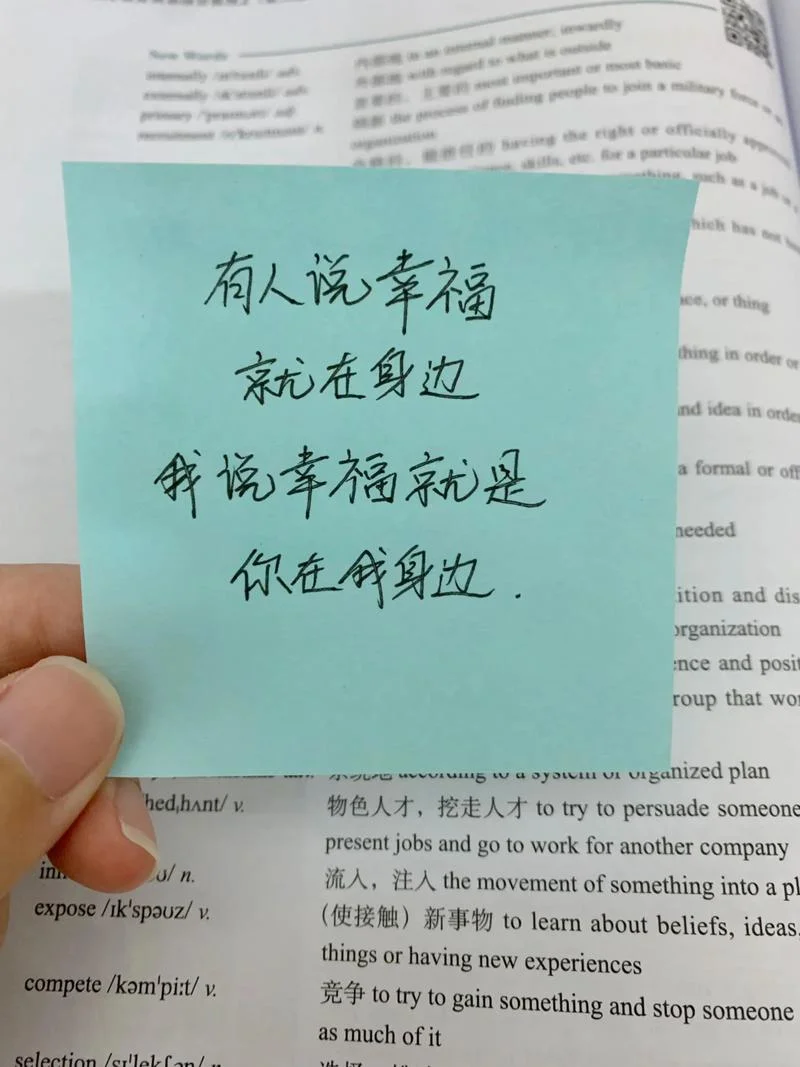 New Words
in an internal manner; inwardly
with regard to what is outside
most important or most basic
the process of finding people to join a military force or
organization
having the right or officially
skills, etc. for a particular job
such as a job
which has not
or thing
thing in order or
and idea in order
a formal or off
needed
ition and dis
organization
ence and posit
roup that wor
有人说幸福
就在身边
我说幸福就是
你在我身边.
according to a system or organized plan
hed,hʌnt/ v.
物色人才，挖走人才 to try to persuade someone
present jobs and go to work for another company
/ n.
流入，注入 the movement of something into a pl
expose /ɪk'spəʊz/ v.
（使接触）新事物 to learn about beliefs, ideas,
things or having new experiences
compete /kəm'piːt/ v.
竞争 to try to gain something and stop someone
as much of it
selection /sɪ'lekʃən/